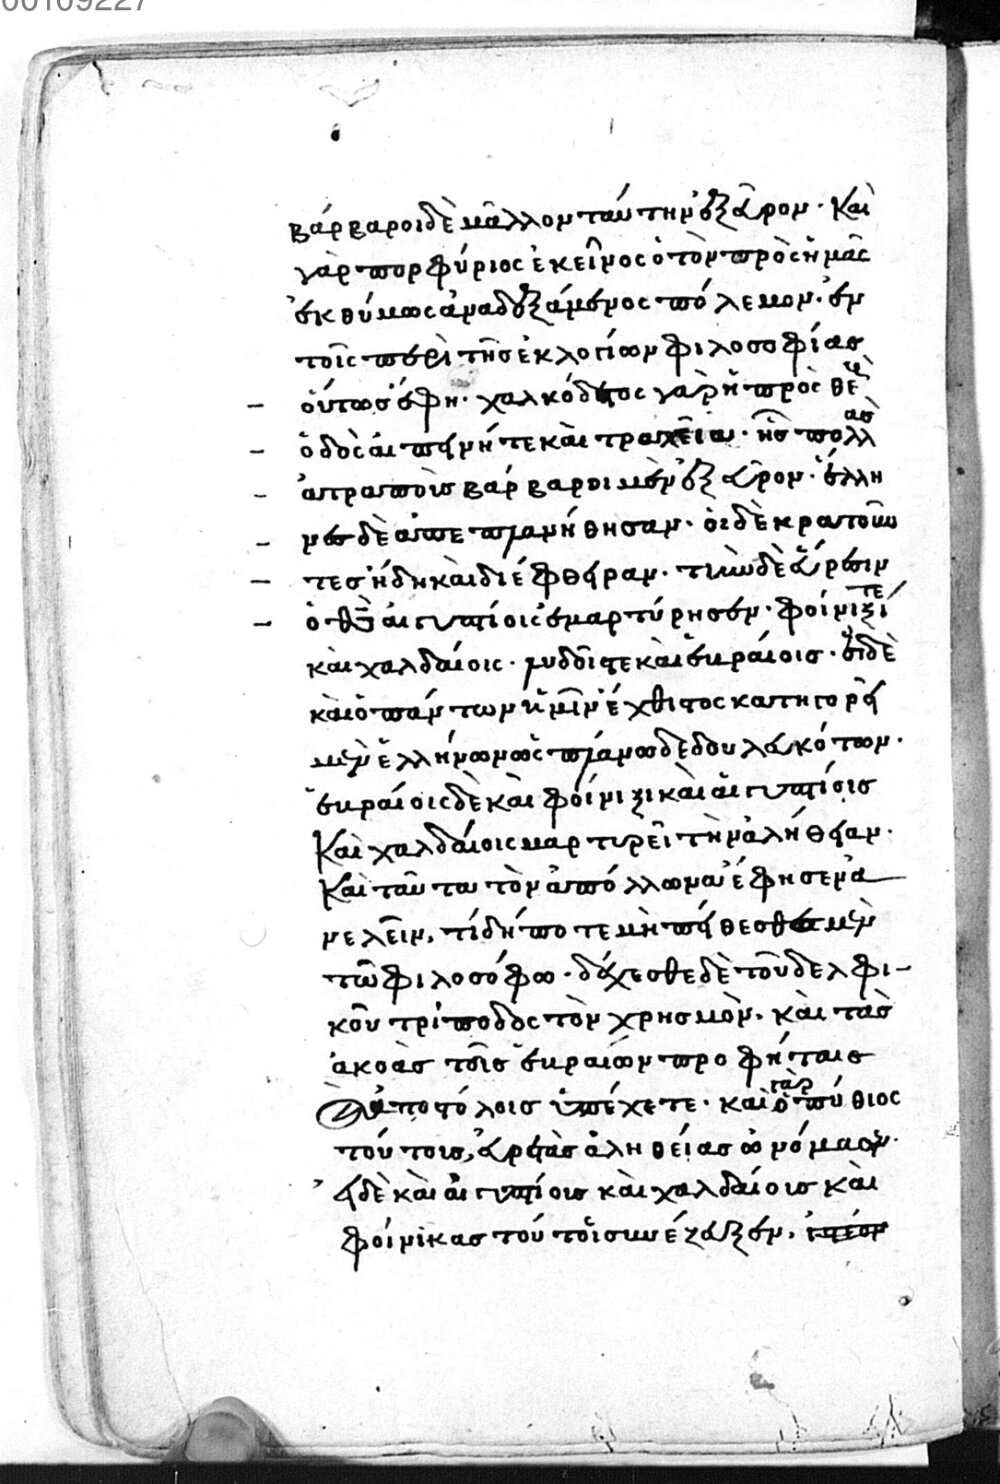 00109227
βάρβαροι δὲ μᾶλλον ταύτην ἐξεῦρον· Καὶ
γὰρ πορφύριος ἐκεῖνος ὁ τὸν πρὸς ἡμᾶς
ἐκθύμως ἀναδεξάμενος πόλεμον· ἐν
τοῖς περὶ τῆς ἐκλογίων φιλοσοφίας
οὕτως ἔφη· χαλκόδετος γὰρ ἡ πρὸς θεοὺς
ὁδὸς αἰπεινή τε καὶ τραχεῖα· ἧς πολλὰς
ἀτραποὺς βάρβαροι μὲν ἐξεῦρον· ἕλλη
νες δὲ ἀπεπλανήθησαν· οἱ δὲ κρατοῦν
τες ἤδη καὶ διέφθειραν· τὴν δὲ εὕρεσιν
ὁ θεὸς αἰγυπτίοις ἐμαρτύρησεν· φοίνιξί τε
καὶ χαλδαίοις· λυδοῖς τε καὶ ἑβραίοις· εἰ δὲ
καὶ ὁ πάντων ἡμῖν ἔχθιστος κατηγορεῖ
μὲν ἑλλήνων ὡς πλάνῳ δεδουλευκότων·
ἑβραίοις δὲ καὶ φοίνιξι καὶ αἰγυπτίοις
Καὶ χαλδαίοις μαρτυρεῖ τὴν ἀλήθειαν·
Καὶ ταῦτα τὸν ἀπόλλωνα ἔφησεν ἀ
γγελεῖν, τί δήποτε μὴ πείθεσθε μὲν
τῷ φιλοσόφῳ· δέχεσθε δὲ τοῦ δελφι-
κοῦ τρίποδος τὸν χρησμὸν, καὶ τὰς
ἀκοὰς τοῖς ἑβραίων προφήταις
καὶ ἀποστόλοις ὑπέχετε· καὶ γὰρ ὁ πύθιος
τούτοις, εὑρετὰς ἀληθείας ὠνόμασεν·
εἰ δὲ καὶ αἰγυπτίοις καὶ χαλδαίοις καὶ
φοίνικας τούτοις συνέζευξεν,